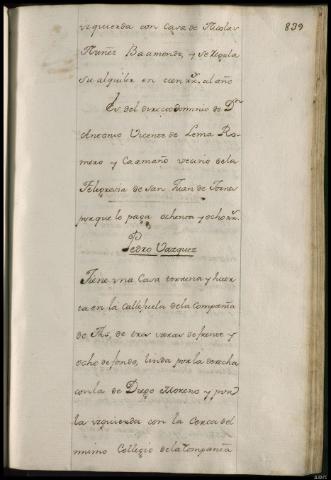 839
yzquierda con Casa de Nicolas
Nuñez Baamonde, y se regula
su alquiler en cien rr.s al año
Es del directo dominio de Dn
Antonio Vicente de Lema Ro-
mero y Caamaño vecino de la
Feligresia de San Juan de
porque le paga ochenta y ocho rr.s
Pedro Vazquez
Tiene una Casa terrena y huer
ta en la callejuela de la Compañia
de Ihs, de tres varas de frente y
ocho de fondo, linda por la derecha
con la de Diego Moreno y por
la yzquierda con la Cerca del
mismo Collegio de la Compañia